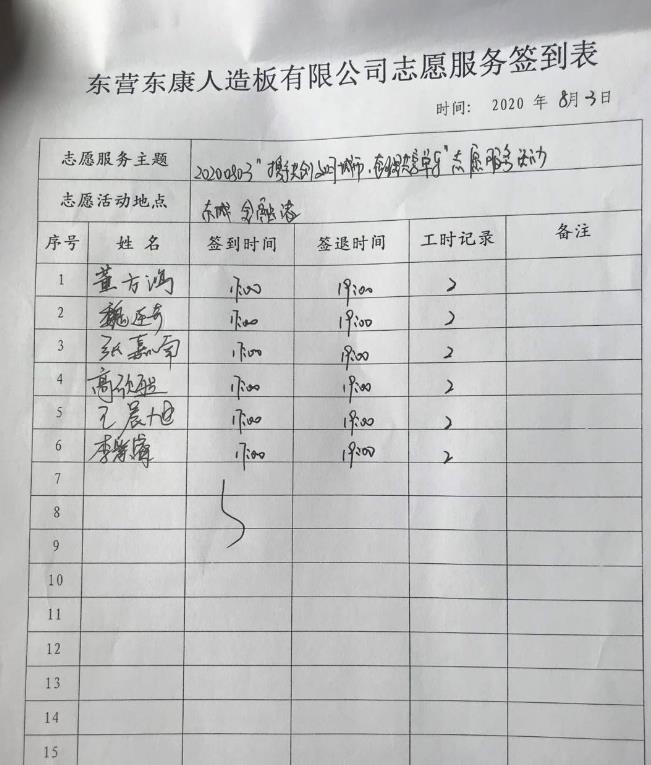 东营东康人造板有限公司志愿服务签到表
时间: 2020 年 8月3日
志愿服务主题 20200803"携手共创文明城市,志愿服务活动
志愿活动地点 东城金融港
序号 姓名 签到时间 签退时间 工时记录 备注
1 董方鸿 17:00 19:00 2
2 魏 17:00 19:00 2
3 张嘉南 17:00 19:00 2
4 高欣 17:00 19:00 2
5 王晨旭 17:00 19:00 2
6 李 17:00 19:00 2
7
8
9
10
11
12
13
14
15